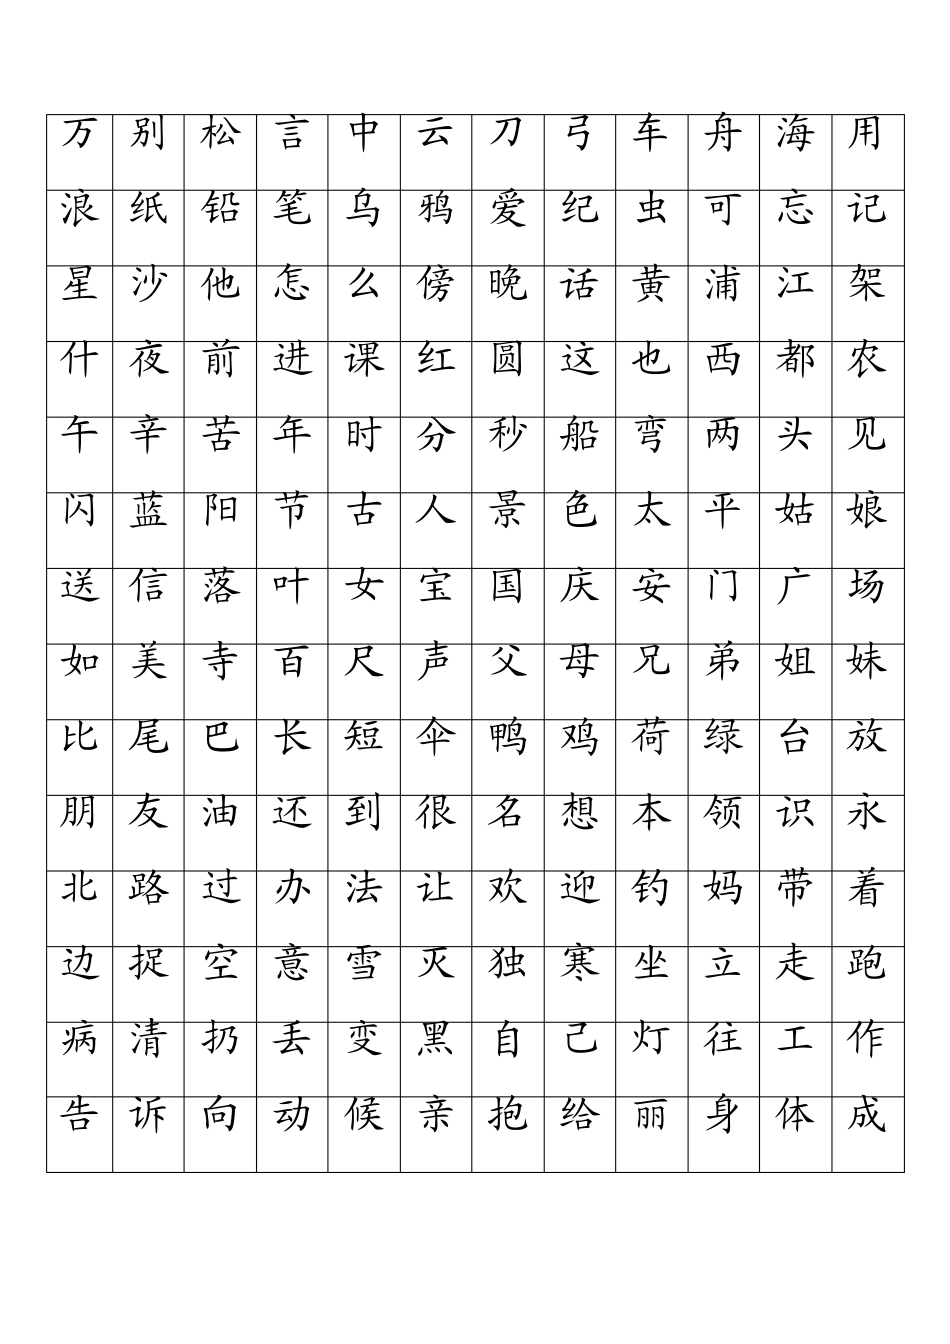 万 别 松 言 中 云 刀 弓 车 舟 海 用
浪 纸 铅 笔 乌 鸦 爱 纪 虫 可 忘 记
星 沙 他 怎 么 傍 晚 话 黄 浦 江 架
什 夜 前 进 课 红 圆 这 也 西 都 农
午 辛 苦 年 时 分 秒 船 弯 两 头 见
闪 蓝 阳 节 古 人 景 色 太 平 姑 娘
送 信 落 叶 女 宝 国 庆 安 门 广 场
如 美 寺 百 尺 声 父 母 兄 弟 姐 妹
比 尾 巴 长 短 伞 鸭 鸡 荷 绿 台 放
朋 友 油 还 到 很 名 想 本 领 识 永
北 路 过 办 法 让 欢 迎 钓 妈 带 着
边 捉 空 意 雪 灭 独 寒 坐 立 走 跑
病 清 扔 丢 变 黑 自 己 灯 往 工 作
告 诉 向 动 候 亲 抱 给 丽 身 体 成